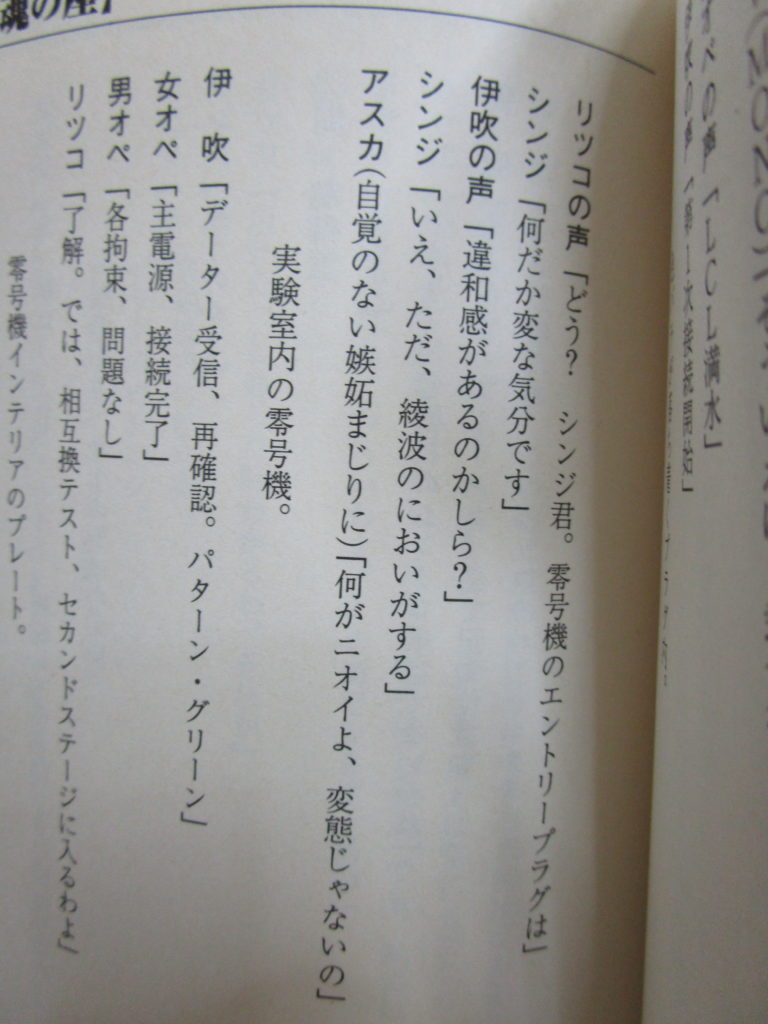 オペの声「LCL満水」
の声「第1次接続開始」
魂の座】
リツコの声「どう？　シンジ君。零号機のエントリープラグは」
シンジ「何だか変な気分です」
伊吹の声「違和感があるのかしら？」
シンジ「いえ、ただ、綾波のにおいがする」
アスカ(自覚のない嫉妬まじりに)「何がニオイよ、変態じゃないの」
実験室内の零号機。
伊　吹「データー受信、再確認。パターン・グリーン」
女オペ「主電源、接続完了」
男オペ「各拘束、問題なし」
リツコ「了解。では、相互換テスト、セカンドステージに入るわよ」
零号機インテリアのプレート。